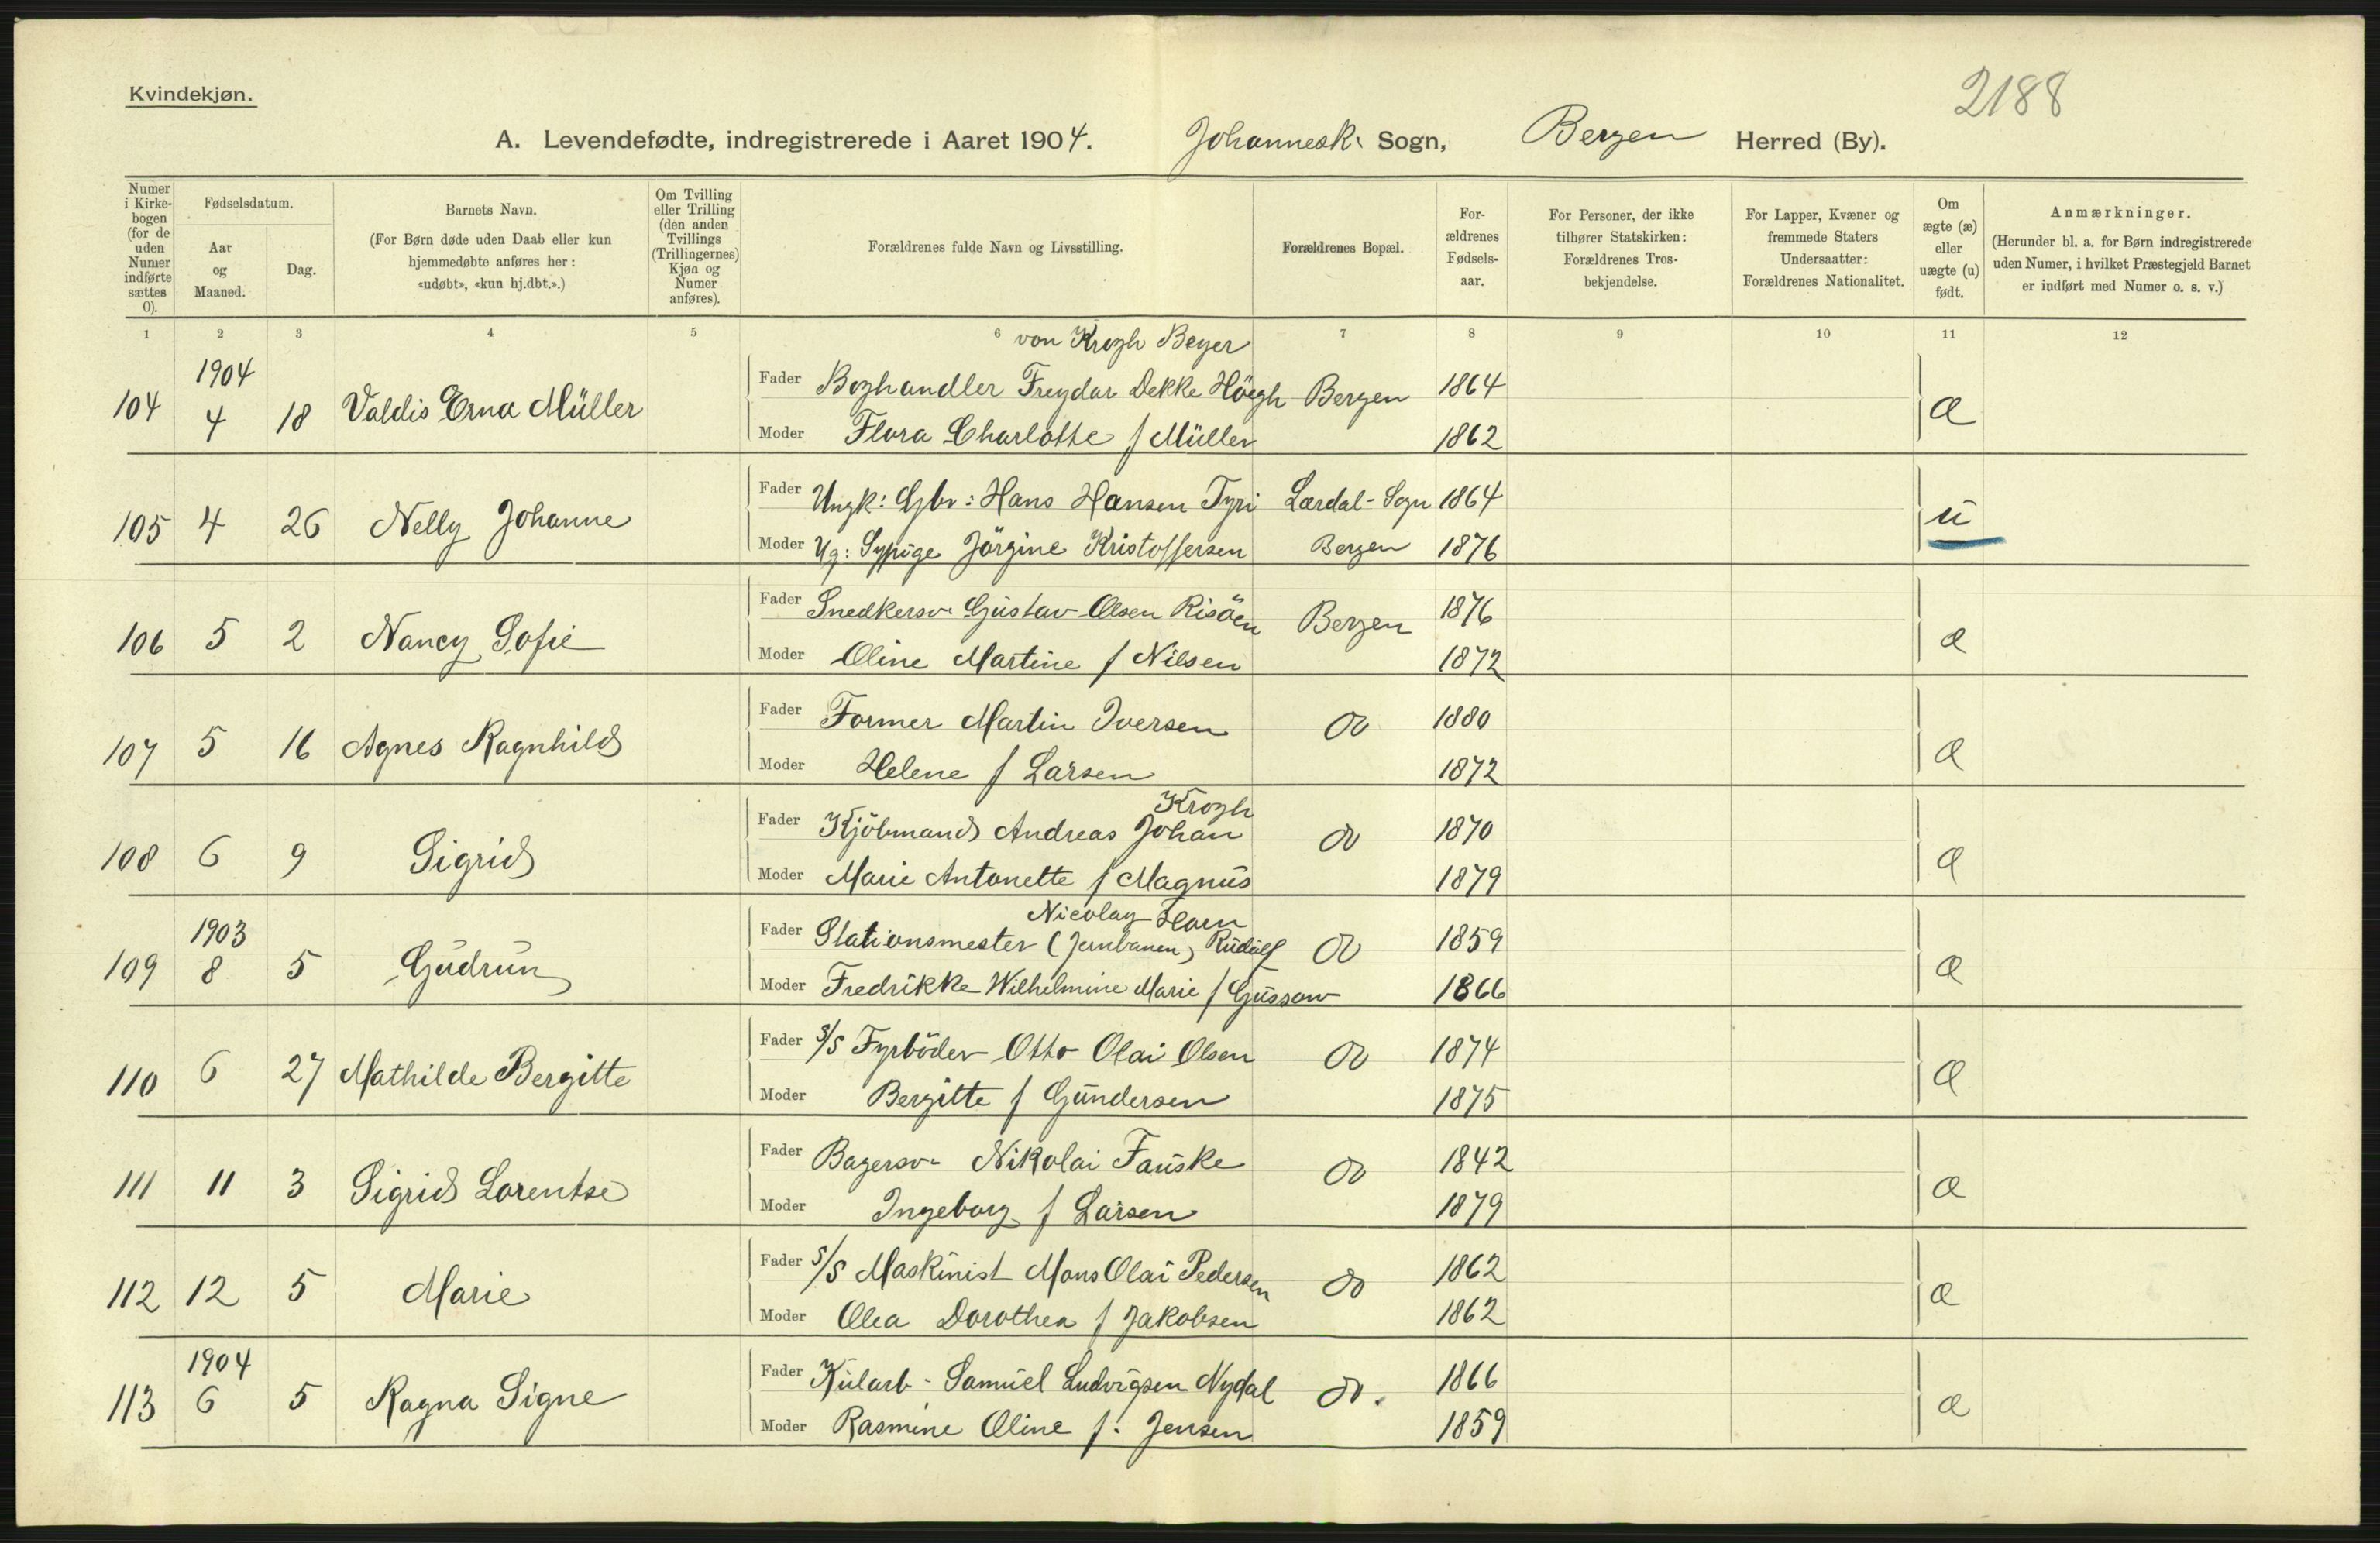 2188
Kvindekjøn.
A. Levendefødte, indregistrerede i Aaret 1904. Johannesk: Sogn, Bergen Herred (By).
Numer i Kirke-bogen (for de uden Numer indførte sættes 0).
Fødselsdatum.
Aar og Maaned.
Dag.
Barnets Navn.
(For Børn døde uden Daab eller kun hjemmedøbte anføres her: «udøbt», «kun hj.dbt.».)
Om Tvilling eller Trilling (den anden Tvillings (Trillingernes) Kjøn og Numer anføres).
Forældrenes fulde Navn og Livsstilling.
Forældrenes Bopæl.
For-ældrenes Fødsels-aar.
For Personer, der ikke tilhører Statskirken: Forældrenes Tros-bekjendelse.
For Lapper, Kvæner og fremmede Staters Undersaatter: Forældrenes Nationalitet.
Om ægte (æ) eller uægte (u) født.
Anmærkninger.
(Herunder bl. a. for Børn indregistrerede uden Numer, i hvilket Præstegjeld Barnet er indført med Numer o. s. v.)
1 2 3 4 5 6 7 8 9 10 11 12
von Krogh Beyer
104 1904 4 18 Valdis Erna Müller Fader Boghandler Freydar Dekke Höegh Bergen 1864 æ
Moder Flora Charlotte f Müller 1862
105 4 26 Nelly Johanne Fader Ungk: Gbr: Hans Hansen Tyri Lærdal-Sogn 1864 u
Moder Ug: Sypige Jörgine Kristoffersen Bergen 1876
106 5 2 Nancy Sofie Fader Snedkersv. Gustav Olsen Risöen Bergen 1876 æ
Moder Oline Martine f Nilsen 1872
107 5 16 Agnes Ragnhild Fader Former Martin Iversen do 1880 æ
Moder Helene f Larsen 1872
Krogh
108 6 9 Sigrid Fader Kjöbmand Andreas Johan do 1870 æ
Moder Marie Antonette f Magnus 1879
Nicolay Horn
109 1903 8 5 Gudrun Fader Stationsmester (Jernbanen) Rudolf do 1859 æ
Moder Fredrikke Wilhelmine Marie f Gussow 1866
110 6 27 Mathilde Bergitte Fader S/S Fyrböder Otto Olai Olsen do 1874 æ
Moder Bergitte f Gundersen 1875
111 11 3 Sigrid Lorentse Fader Bagersv. Nikolai Fauske do 1842 æ
Moder Ingeborg f Larsen 1879
112 12 5 Marie Fader S/S Maskinist Mons Olai Pedersen do 1862 æ
Moder Olea Dorothea f Jakobsen 1862
113 1904 6 5 Ragna Signe Fader Kularb. Samuel Ludvigsen Nydal do. 1866 æ
Moder Rasmine Oline f. Jensen 1859